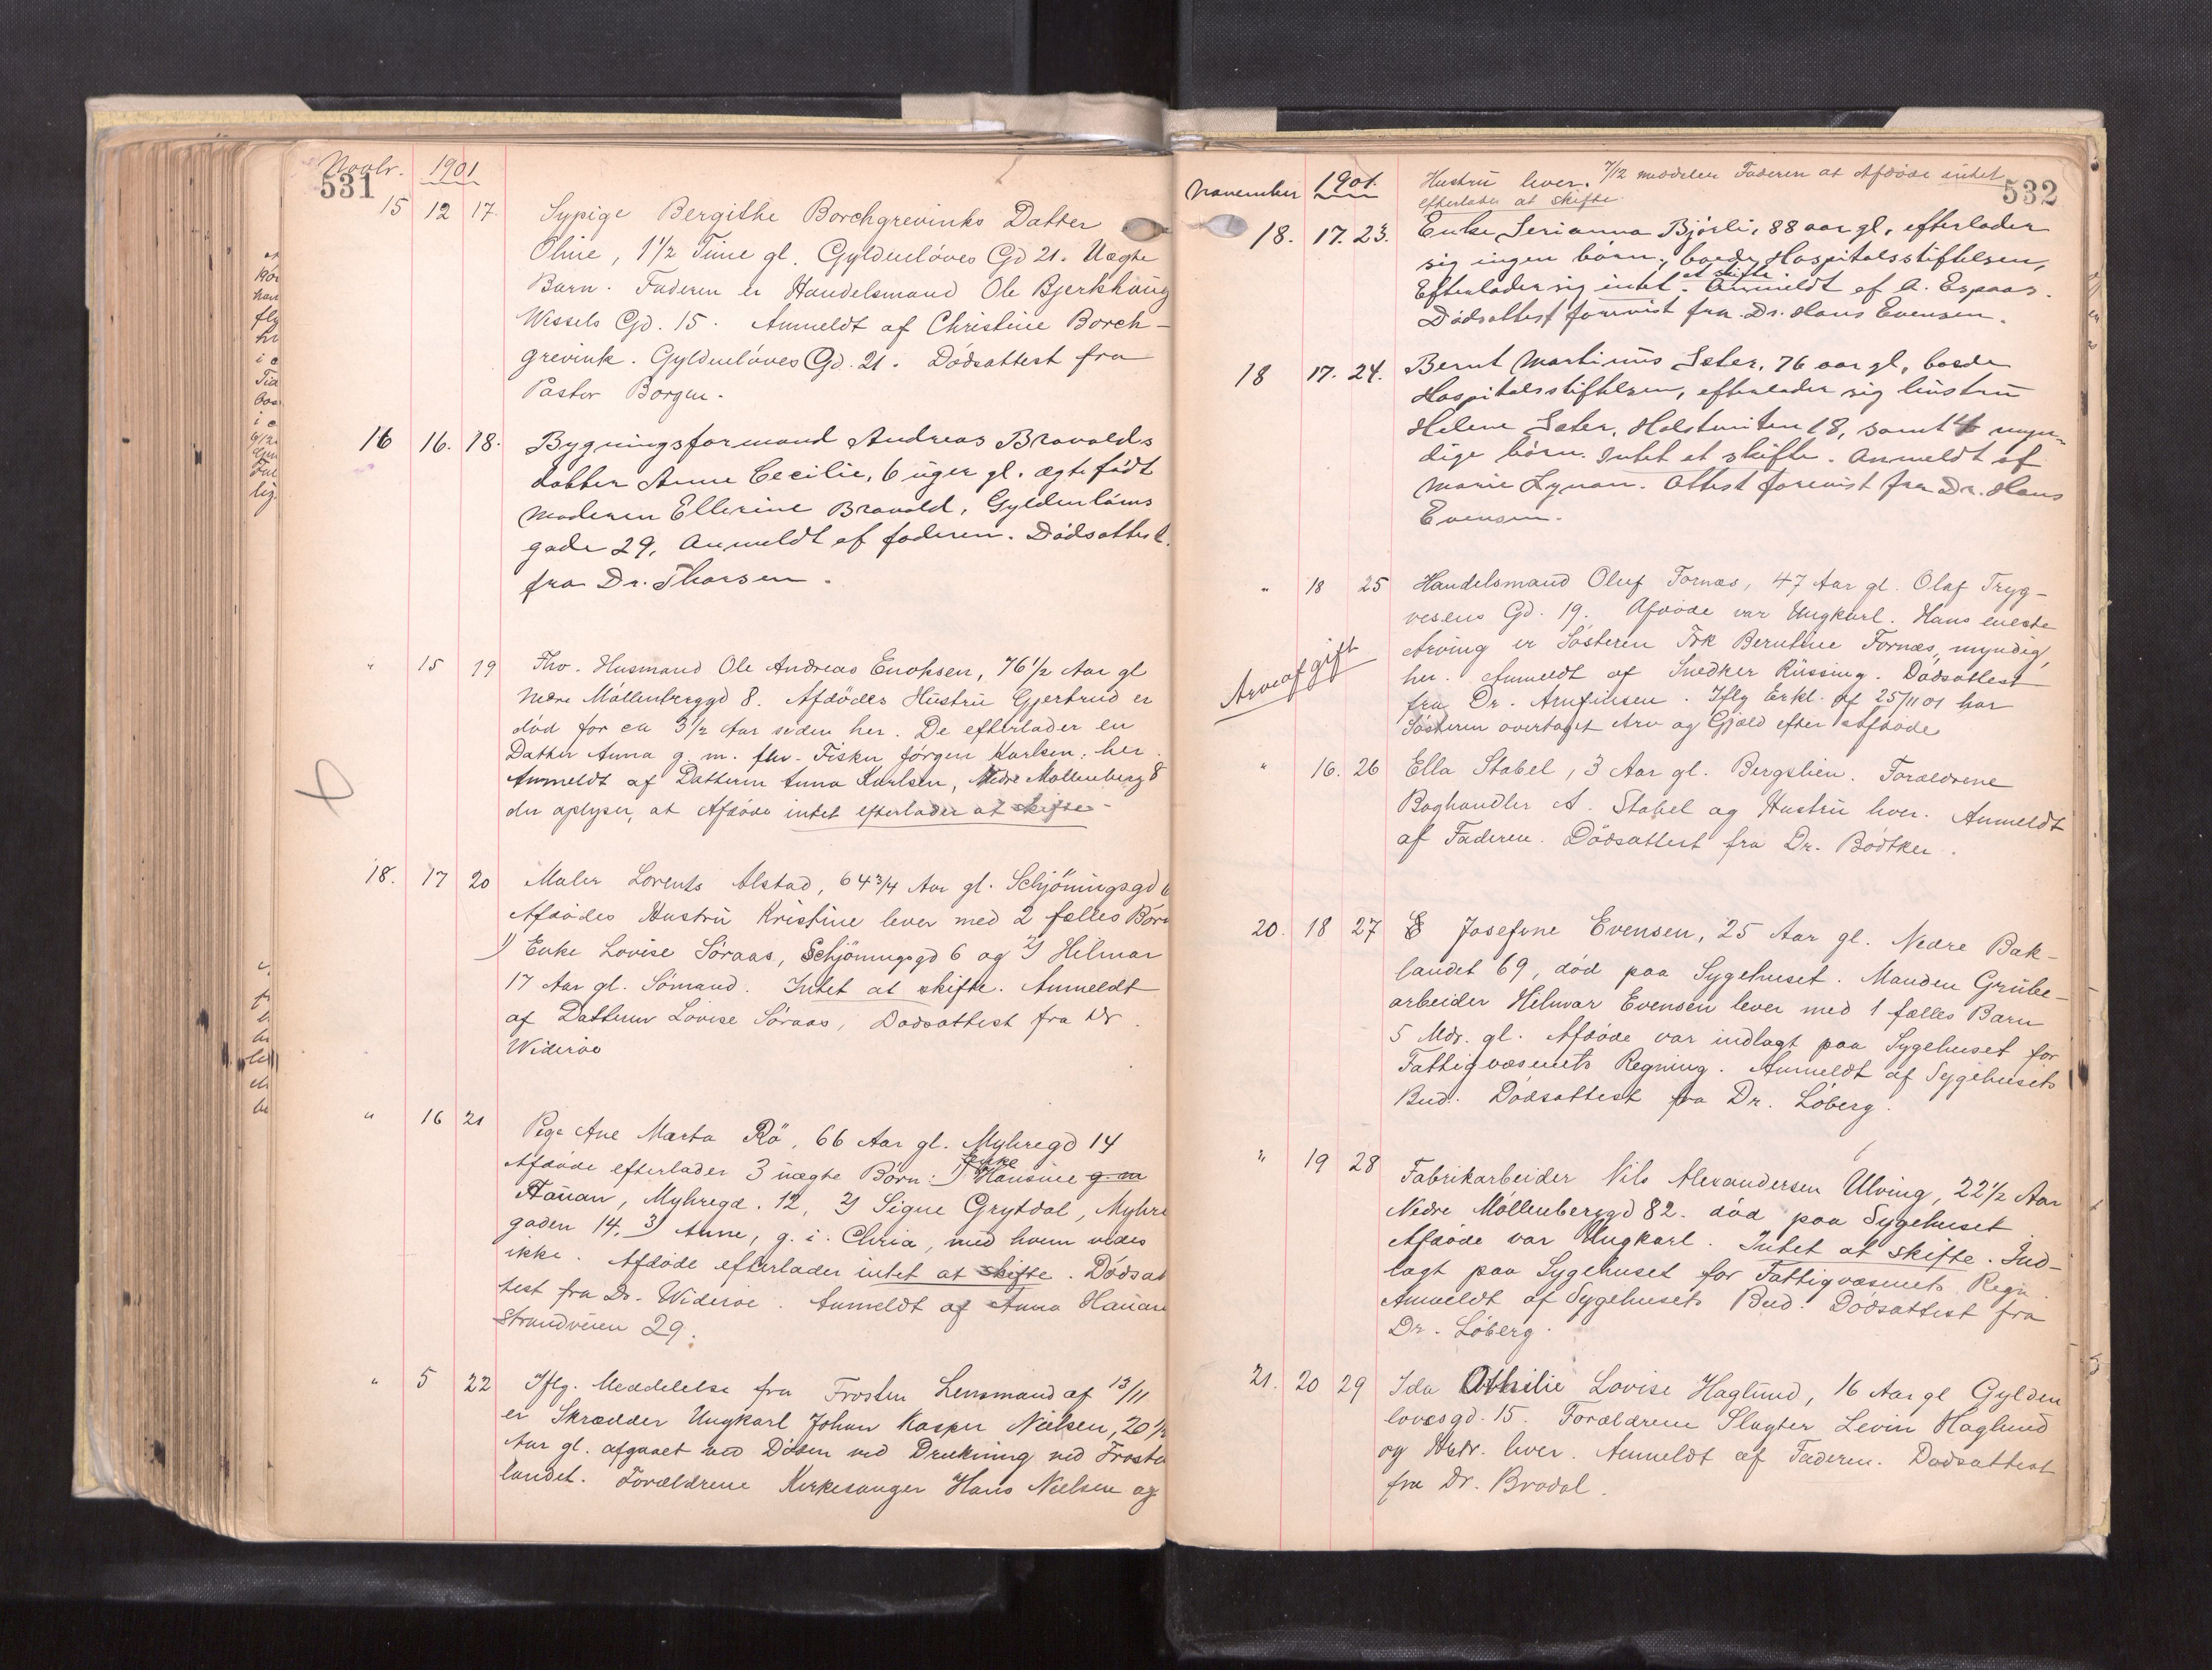 Novbr. 1901
531
15 12 17. Sypige Bergithe Borchgrevinks Datter
Oline, 1 1/2 Time gl. Gyldenløves Gd 21. Uægte
Barn. Faderen er Handelsmand Ole Bjerkhaug
Wessels Gd. 15. Anmeldt af Christine Borch-
grevink. Gyldenløves Gd. 21. Dødsattest fra
Pastor Borgen.
16 16. 18. Bygningsformand Andreas Bravolds
datter Anne Cecilie, 6 uger gl. ægte født
Moderen Ellerine Bravold, Gyldenløws
gade 29. Anmeldt af faderen. Dødsattest
fra Dr. Thorsen.
" 15 19 Fhv. Husmand Ole Andreas Enoksen, 76 1/2 Aar gl
Nedre Møllenberggd 8. Afdødes Hustru Gjertrud er
død for ca 3 1/2 Aar siden her. De efterlader en
Datter Anna g. m. fhv. Fisker Jørgen Karlsen, her.
Anmeldt af Datteren Anna Karlsen, Nedre Møllenberg 8
der oplyser, at Afdøde intet efterlader at skifte -
18. 17 20 Maler Lorents Alstad, 64 3/4 Aar gl. Schjøningsgd 6
Afdødes Hustru Kristine lever med 2 fælles Børn
1) Enke Lovise Søraas, Schjøningsgd 6 og 2) Hilmar
17 Aar gl. Sømand. Intet at skifte. Anmeldt
af Datteren Lovise Søraas, Dødsattest fra Dr.
Widerøe
" 16 21 Pige Ane Marta Rö, 66 Aar gl. Myhregd 14
Afdøde efterlader 3 uægte Børn: 1) Enke Hansine g. m
Hauan, Myhregd. 12, 2) Signe Grytdal, Myhre
gaden 14. 3) Anne, g. i. Chria, med hvem vides
ikke. Afdøde efterlader intet at skifte. Dødsat
test fra Dr. Widerøe. Anmeldt af Anna Hauan
Strandveien 29.
" 5 22 Iflg. Meddelelse fra Frosten Lensmand af 13/11
er Skrædder Ungkarl Johan Kasper Nielsen, 20 1/2
Aar gl. afgaaet ved Døden ved Drukning ved Frosta
landet. Forældrene Kirkesanger Hans Nielsen og
November 1901.
532
Hustru lever. 7/12 meddeler Faderen at Afdøde intet
efterlader at skifte
18. 17. 23. Enke Serianna Bjørli, 88 aar gl, efterlader
sig ingen børn, boede Hospitalsstiftelsen,
Efterlader sig intet at skifte. Anmeldt af A. Espaas.
Dødsattest forevist fra Dr. Hans Evensen.
18 17. 24. Bernt Martinus Sæter, 76 aar gl, boede
Hospitalsstiftelsen, efterlader sig hustru
Helene Sæter, Holstveiten 18, samt 4 myn-
dige børn. Intet at skifte. Anmeldt af
Marie Lynan. Attest forevist fra Dr. Hans
Evensen.
" 18 25 Handelsmand Oluf Fornæs, 47 Aar gl. Olaf Tryg-
vesens Gd. 19. Afdøde var Ungkarl. Hans eneste
Arving er Søsteren Frk Berntine Fornæs, myndig,
her. Anmeldt af Snedker Rüssing. Dødsattest
fra Dr. Arnfinsen. Iflg Erkl. af 25/11 01 har
Søsteren overtaget Arv og Gjæld efter Afdøde
Arveafgift
" 16. 26 Ella Stabel, 3 Aar gl. Bergslien. Forældrene
Boghandler A. Stabel og Hustru lever. Anmeldt
af Faderen. Dødsattest fra Dr. Bødtker.
20. 18 27 Josefine Evensen, 25 Aar gl. Nedre Bak-
landet 69, død paa Sygehuset. Manden Grube-
arbeider Helmar Evensen lever med 1 fælles Barn
5 Mdr. gl. Afdøde var indlagt paa Sygehuset for
Fattigvæsenets Regning. Anmeldt af Sygehusets
Bud. Dødsattest fra Dr. Løberg.
" 19 28 Fabrikarbeider Nils Alexandersen Ulving, 22 1/2 Aar
Nedre Møllenberggd 82. død paa Sygehuset
Afdøde var Ungkarl. Intet at skifte. Ind-
lagt paa Sygehuset for Fattigvæsenets Regn.
Anmeldt af Sygehusets Bud. Dødsattest fra
Dr. Løberg.
21. 20 29 Ida Othilie Lovise Haglund, 16 Aar gl Gylden
løvesgd. 15. Forældrene Slagter Levin Haglund
og Hstr. lever. Anmeldt af Faderen. Dødsattest
fra Dr. Brodal.